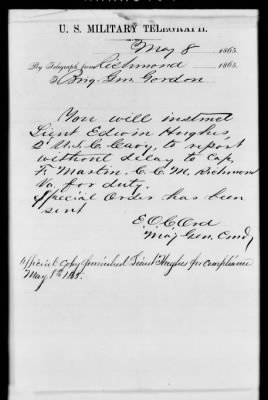 U. S. MILITARY TELEGRAPH.
May 8 1865.
By Telegraph from Richmond 1865.
To Brig. Gen. Gordon
You will instruct
Lieut Edwin Hughes,
2" U.S.C. Cavy, to report
without delay to Cap.
F. Martin. C. C. M. Richmond
Va, for duty.
Special Order has been
sent
E.O.C. Ord
Maj Gen. Cmdg
Official copy furnished Lieut Hughes for compliance
May 8th 1865.